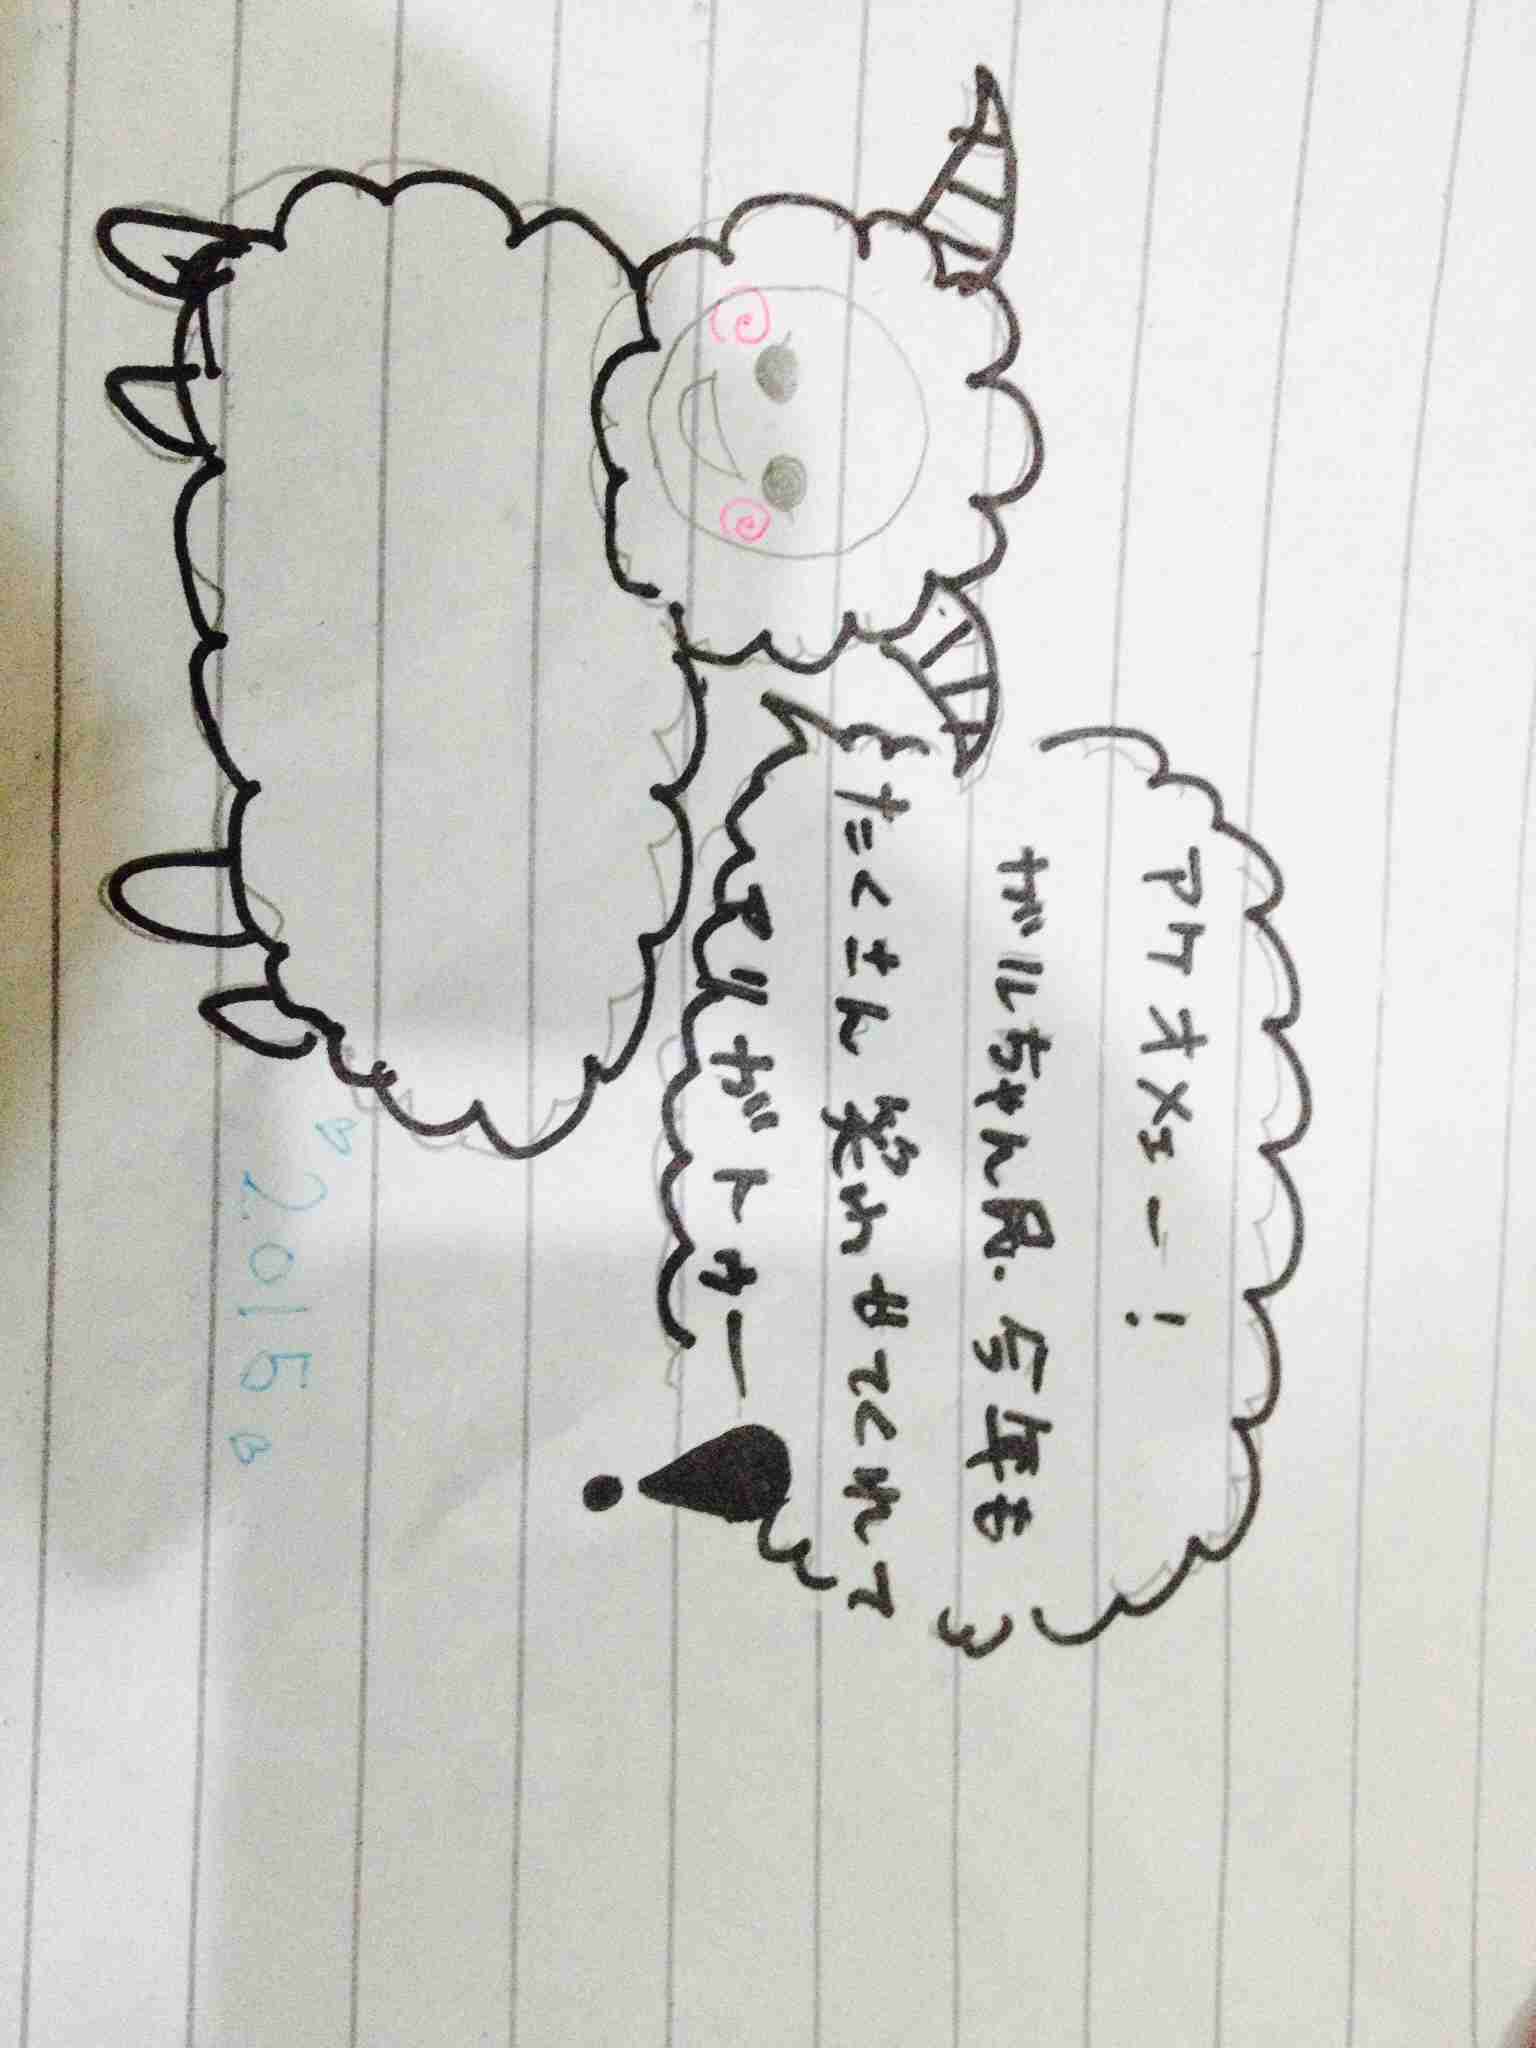 アケオメェー!
ガルちゃん民.今年も
たくさん笑わせてくれて
アリガトゥー!
"2015"